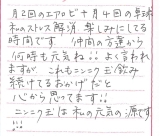 月2回のエアロビ十月4回の卓球
私のストレス解消、楽しみにしてる
時間です 仲間の方達から
何時も元気ね!!よく言われ
ますが、これもニンニク玉飲み
続けてるおかげだと
心から思ってます!!
ニンニク玉は私の元気の源です
!!!